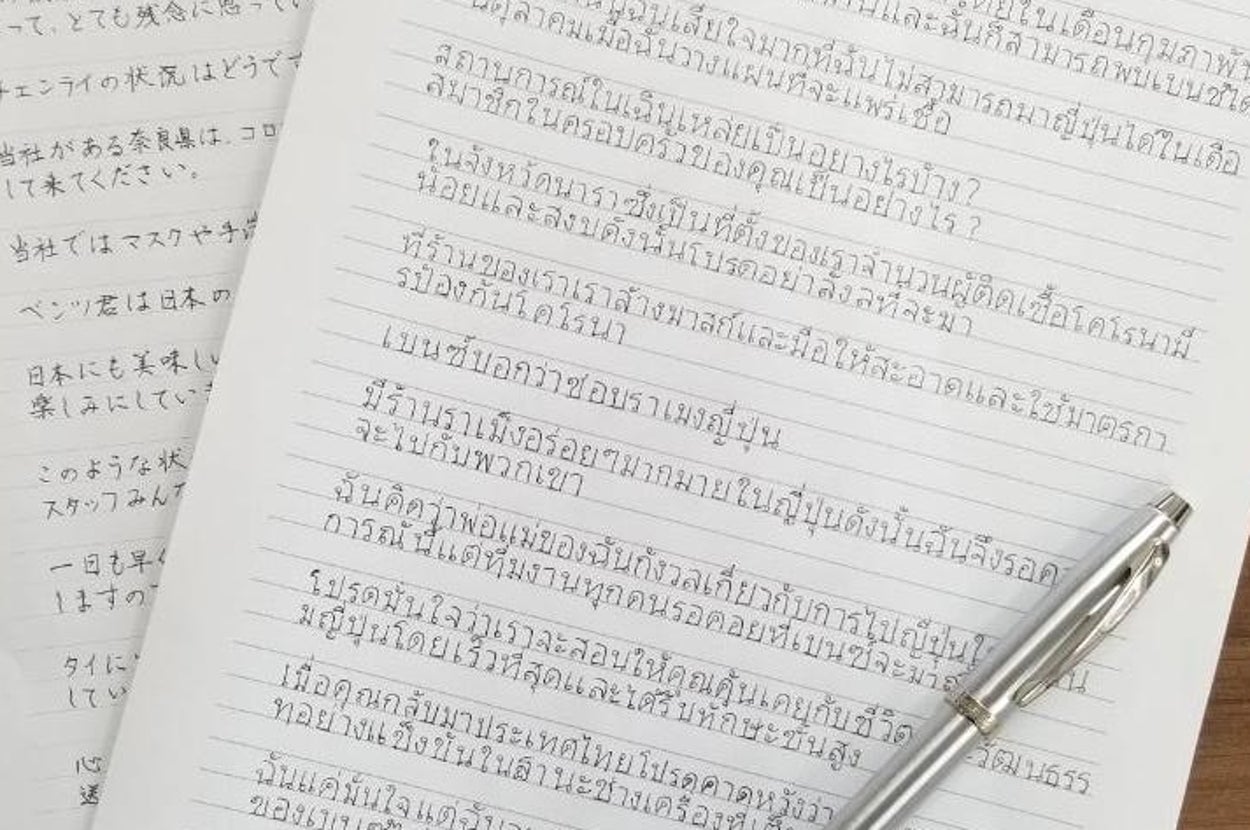 って、とても残念に思ってい
チェンライの状況はどうです
当社がある奈良県は、コロ
して来てください。
当社ではマスクや手
ベンツ君は日本の
日本にも美味しい
楽しみにしていま
このような状
スタッフみんな
一日も早く
しますので
タイに
してい
心
送
ในเดือนกุมภาพั
และฉันก็สามารถพบเบนซ์ได้
ฉันเสียใจมากที่ฉันไม่สามารถมาญี่ปุ่นได้ในเดือ
นตุลาคมเมื่อฉันวางแผนที่จะแพร่เชื้อ
สถานการณ์ในเฉินเหล่ยเป็นอย่างไรบ้าง?
สมาชิกในครอบครัวของคุณเป็นอย่างไร?
ในจังหวัดนาราซึ่งเป็นที่ตั้งของเราจำนวนผู้ติดเชื้อโคโรนามี
น้อยและสงบดังนั้นโปรดอย่าลังลที่จะมา
ที่ร้านของเราเราล้างมาสก์และมือให้สะอาดและใช้มาตรกา
รป้องกันโคโรนา
เบนซ์บอกว่าชอบราเมงญี่ปุ่น
มีร้านราเม็งอร่อยๆมากมายในญี่ปุ่นดังนั้นฉันจึงรอค
จะไปกับพวกเขา
ฉันคิดว่าพ่อแม่ของฉันกังวลเกี่ยวกับการไปญี่ปุ่นใ
การณ์นี้แต่ทีมงานทุกคนรอคอยที่เบนซ์จะมา
โปรดมั่นใจว่าเราจะสอนให้คุณคุ้นเคยกับชีวิต วัฒนธรร
มญี่ปุ่นโดยเร็วที่สุดและได้รับทักษะขั้นสูง
เมื่อคุณกลับมาประเทศไทยโปรดคาดหวังว่า
ทอย่างแข็งขันในฐานะช่างเครื่องที่
ฉันแค่มั่นใจแต่ฉัน
ของเบนซ์